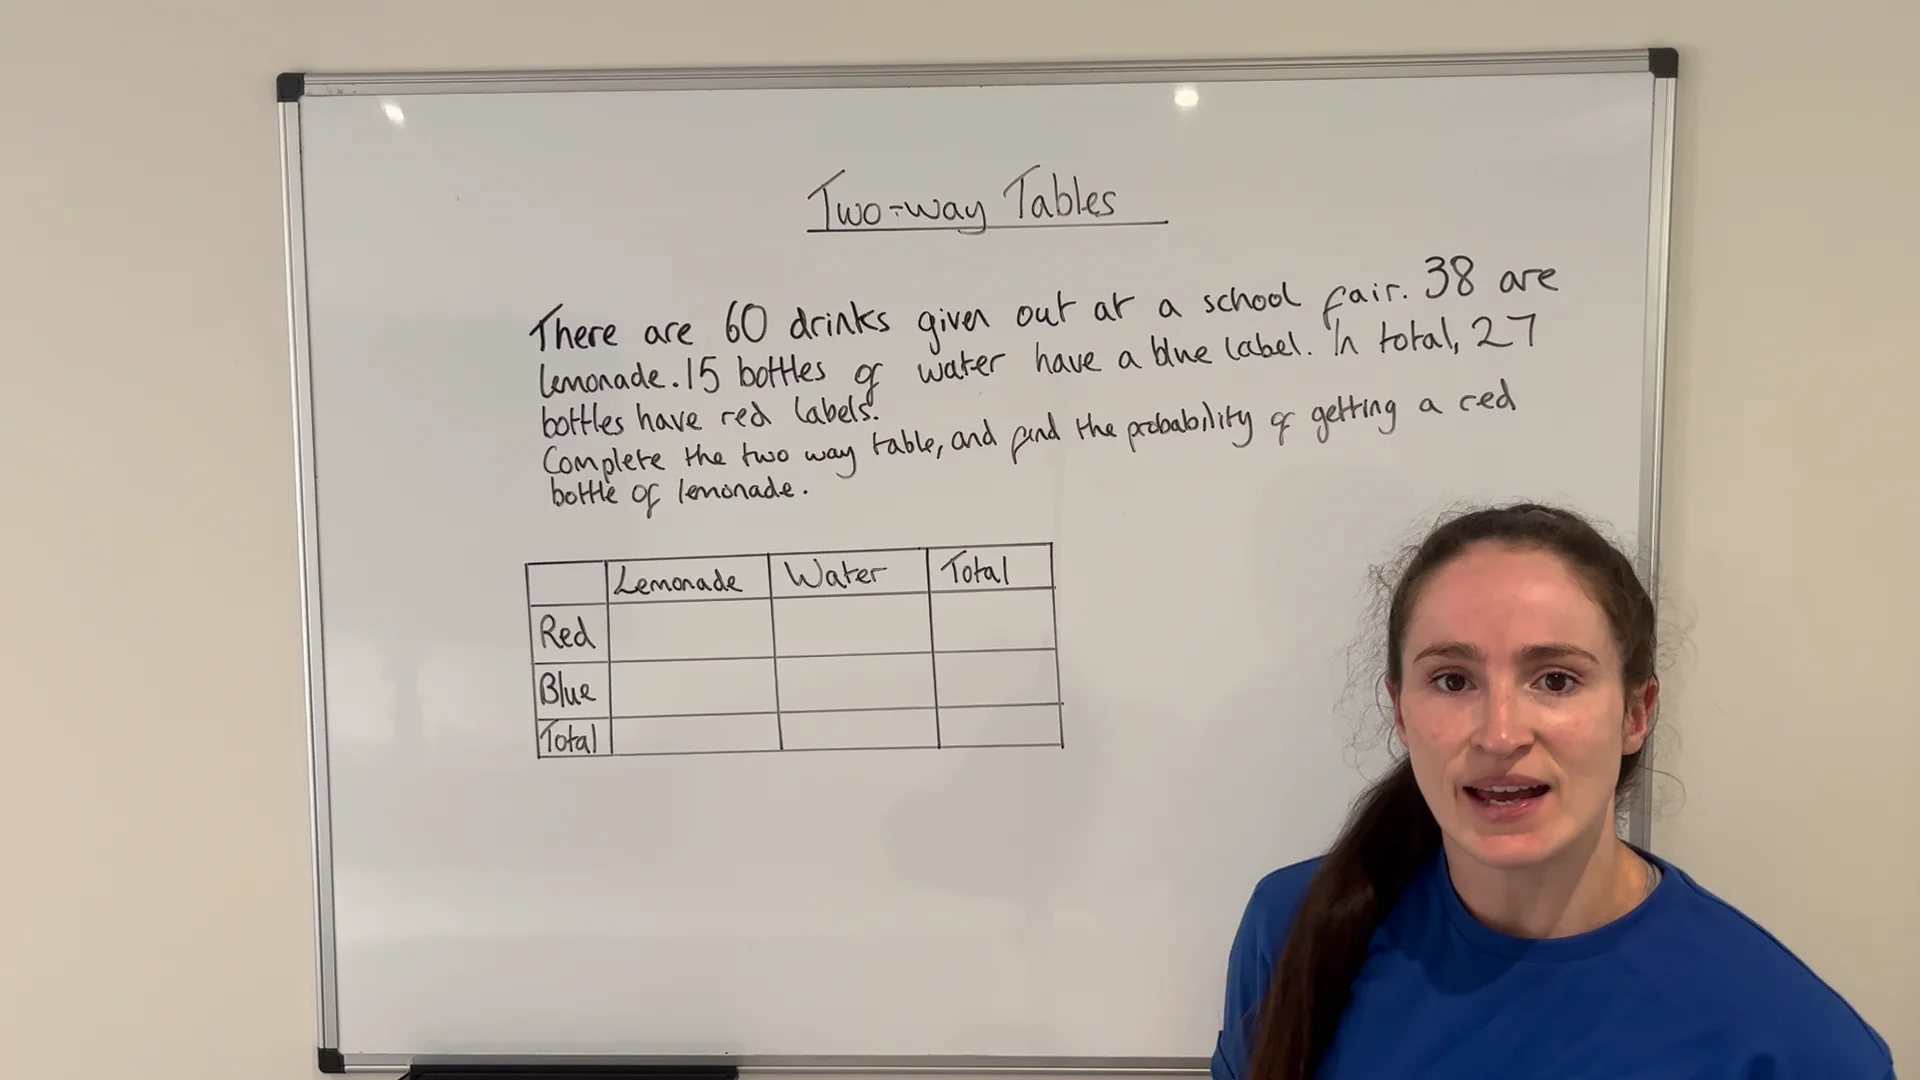 Two-way Tables
There are 60 drinks given out at a school fair. 38 are
lemonade. 15 bottles of water have a blue label. In total, 27
bottles have red labels.
Complete the two way table, and find the probability of getting a red
bottle of lemonade.
Lemonade Water Total
Red
Blue
Total